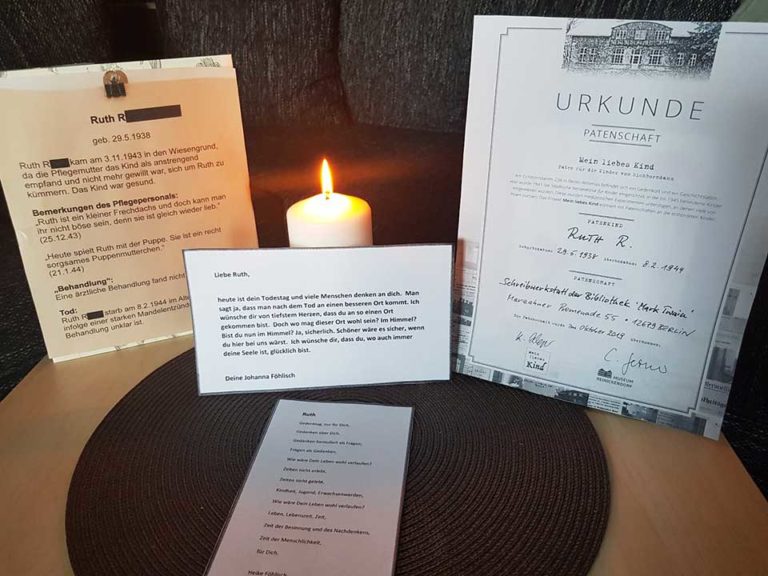 Ruth R
geb. 29.5.1938
Ruth R kam am 3.11.1943 in den Wiesengrund,
da die Pflegemutter das Kind als anstrengend
empfand und nicht mehr gewillt war, sich um Ruth zu
kümmern. Das Kind war gesund.
Bemerkungen des Pflegepersonals:
„Ruth ist ein kleiner Frechdachs und doch kann man
ihr nicht böse sein, denn sie ist gleich wieder lieb."
(25.12.43)
„Heute spielt Ruth mit der Puppe. Sie ist ein recht
sorgsames Puppenmütterchen."
(21.1.44)
„Behandlung":
Eine ärztliche Behandlung fand nicht
Tod:
Ruth R starb am 8.2.1944 im
infolge einer starken Mandelentzünd
Behandlung unklar ist.
Liebe Ruth,
heute ist dein Todestag und viele Menschen denken an dich. Man
sagt ja, dass man nach dem Tod an einen besseren Ort kommt. Ich
wünsche dir von tiefstem Herzen, dass du an so einen Ort
gekommen bist. Doch wo mag dieser Ort wohl sein? Im Himmel?
Bist du nun im Himmel? Ja, sicherlich. Schöner wäre es sicher, wenn
du hier bei uns wärst. Ich wünsche dir, dass du, wo auch immer
deine Seele ist, glücklich bist.
Deine Johanna Föhlisch
Ruth
Gedenktag, nur für Dich.
Gedanken über Dich.
Gedanken formuliert als Fragen,
Fragen als Gedanken.
Wie wäre Dein Leben wohl verlaufen?
Zeiten nicht erlebt,
Zeiten nicht gelebt.
Kindheit, Jugend, Erwachsenwerden,
Wie wäre Dein Leben wohl verlaufen?
Leben, Lebenszeit, Zeit,
Zeit der Besinnung und des Nachdenkens,
Zeit der Menschlichkeit,
für Dich.
Heike Föhlisch
URKUNDE
PATENSCHAFT
Mein liebes Kind
Paten für die Kinder von Eichborndamm
PATENKIND
RUTH R.
Geburtsdatum: 29.5.1938 Sterbedatum: 8.2.1944
PATENSCHAFT
Schreibwerkstatt der Bibliothek 'Mark Twain'
Marzahner Promenade 55 • 12679 BERLIN
Die Patenschaft wurde im Oktober 2019
mein liebes Kind
MUSEUM
REINICKENDORF